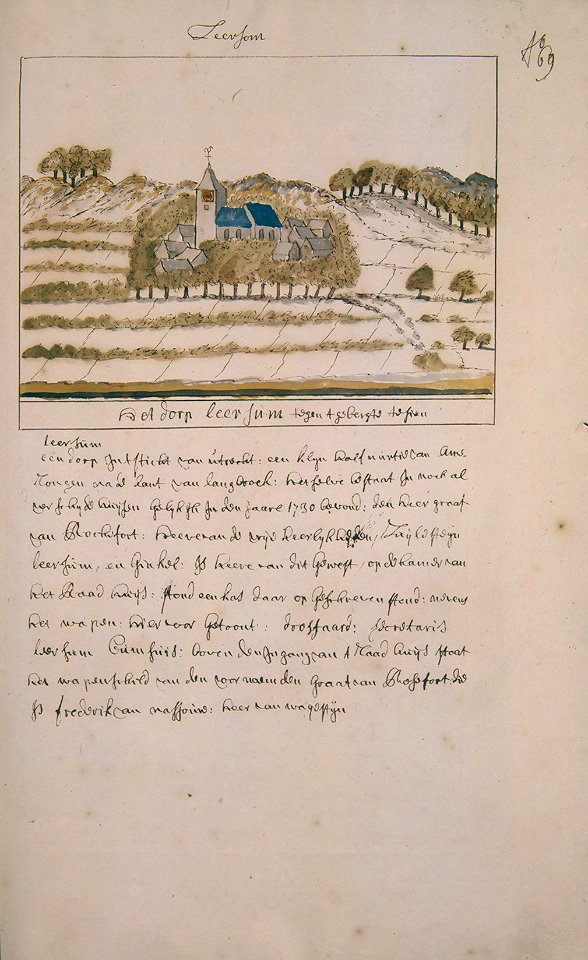 Leersom
69
Het dorp leersum tegen t gebergte te sien
leersum
een dorp in t sticht van utrecht: een klyn half uurtie van Ame-
rongen na de kant van langbroek: het selve bestaat in noch al
verschyde huysen gelyk ik in den jaare 1730 bevond: den heer graaf
van Rochefort: heere van de vrye heerlykheden, Zuylesteyn
leersum, en Ginkel: is heere van dit geweest, op de kamer van
het Raad huys: stond een kas daar op geschreven stond: nevens
het wapen: hier voor getoont: secretaris
leersum Cum suis: boven den ingang van t Raad huys staat
het wapenschild van den voornoemden Graaf van Rossfort, die
is frederik van nassouw: heer van